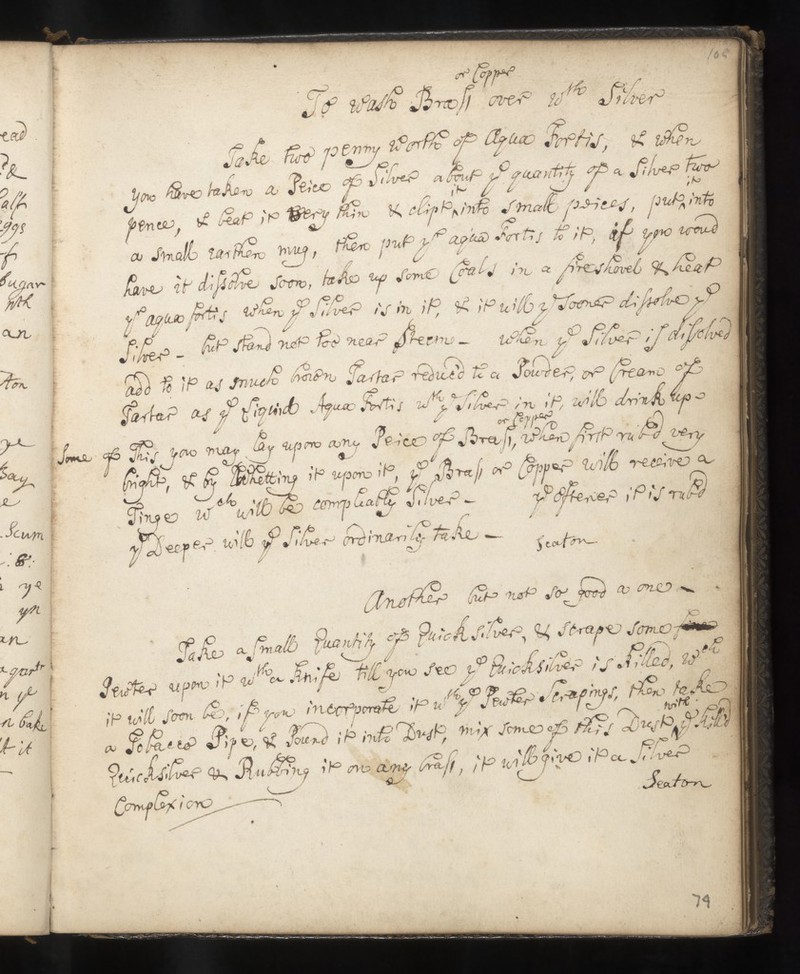 105
or Copper
To wash Brass over wth Silver
Take two penny worth of Aqua Fortis, & when
you have taken a Peice of Silver about ye quantity of a Silver two
pence, & beat it very thin & clipt it into small peices, put it into
a small earthen mug, then put ye aqua Fortis to it, if you woud
have it dissolve soon, take up some Coals in a fireshovel & heat
ye aqua fortis when ye Silver is in it, & it will ye sooner dissolve ye
Silver - but stand not too near Steem - when ye Silver is dissolved
add to it as much brown Tartar reduc'd to a Powder, or Cream of
Tartar as ye Liquid Aqua Fortis wth ye Silver in it, will drink up
or Copper
Some of This you may lay upon any Peice of Brass, when first rub'd very
bright, & by Whetting it upon it, ye Brass or Copper will receive a
Tinge wch will be compleatly Silver - ye oftener it is rub'd
ye Deeper will ye Silver ordinarily take - Seaton
Another but not so good a one -
Take a small Quantity of Quick silver, & scrape some fine
Pewter upon it wth a Knife till you see ye Quicksilver is Killed, wch
it will soon be, if you incorporate it wth ye Pewter Scrapings, then take
a Tobacco Pipe, & Pound it into Dust, mix some of this Dust with ye Kill'd
Quicksilver & Rubbing it on any brass, it will give it a Silver
Complexion Seaton
79
ead
alf
eggs
of
Sugar
an
ton
ye
Say
Scum
ye
yn
an
a quartr
n ye
n bake
it